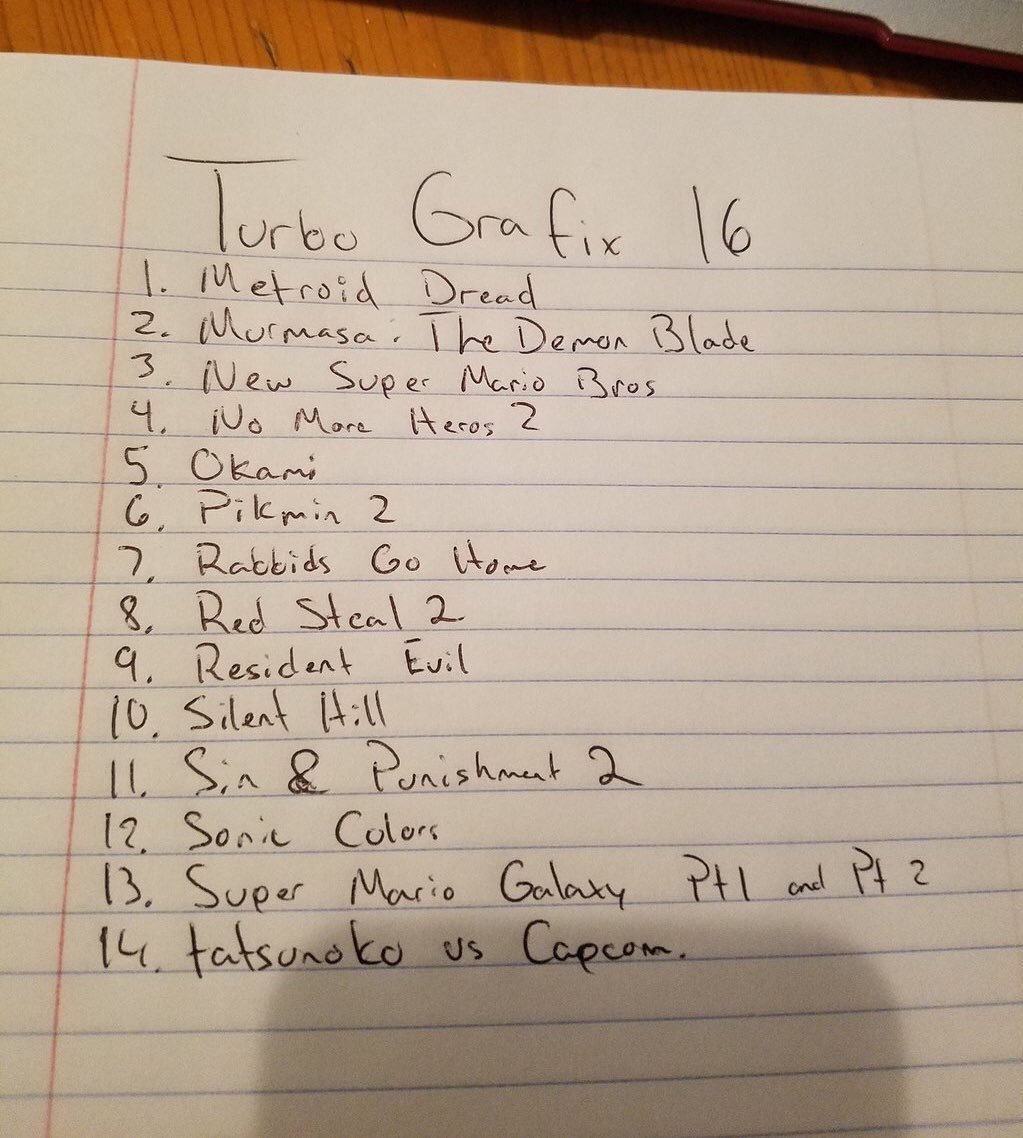 Turbo Grafix 16
1. Metroid Dread
2. Murmasa: The Demon Blade
3. New Super Mario Bros
4. No More Heros 2
5. Okami
6. Pikmin 2
7. Rabbids Go Home
8. Red Steal 2
9. Resident Evil
10. Silent Hill
11. Sin & Punishment 2
12. Sonic Colors
13. Super Mario Galaxy Pt 1 and Pt 2
14. tatsunoko vs Capcom.